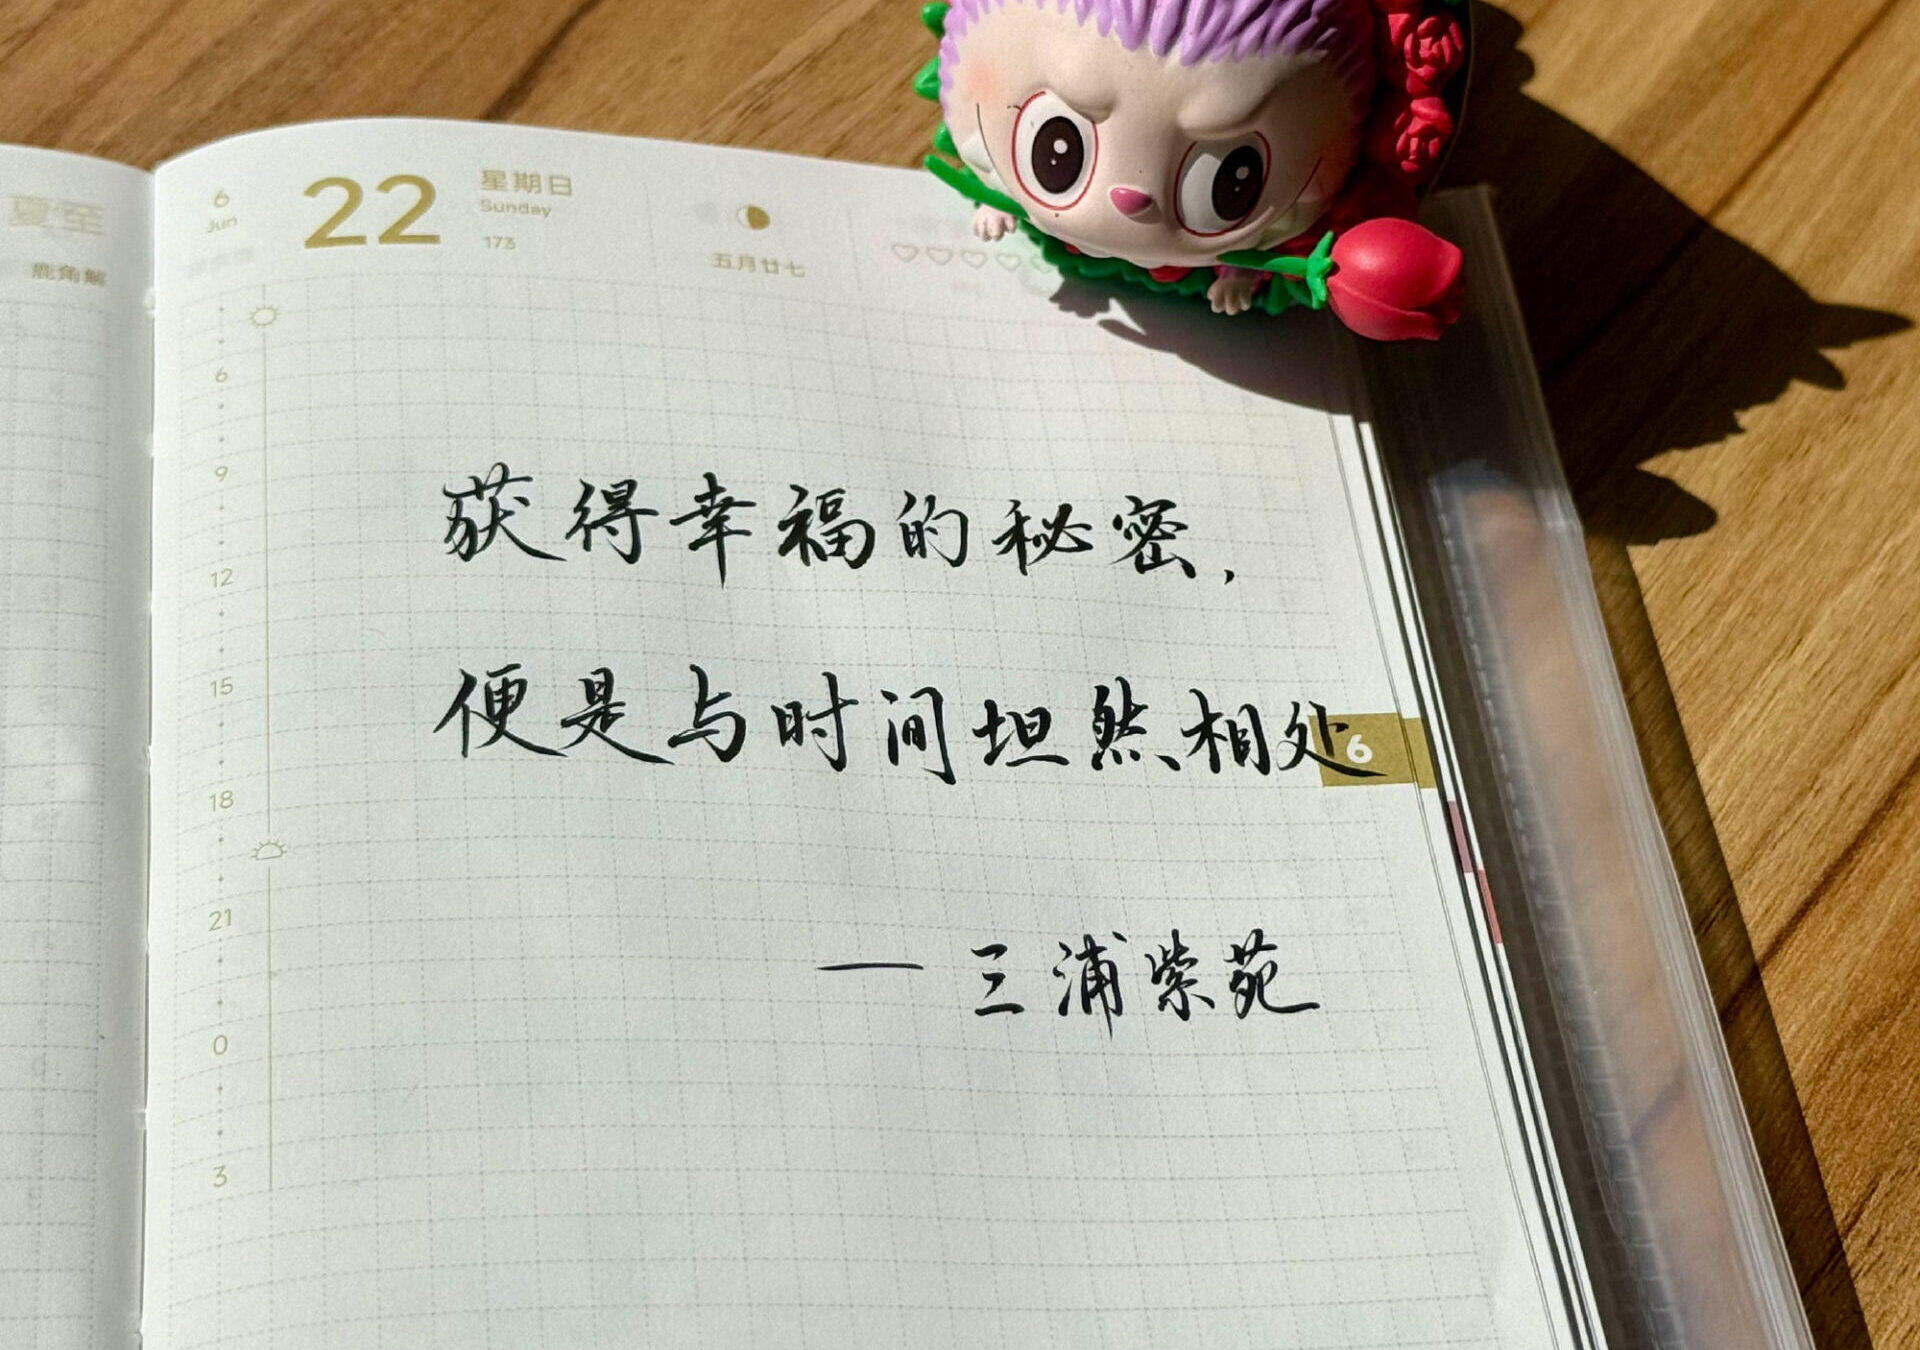 夏至
鹿角解
6
Jun
22
星期日
Sunday
173
五月廿七
6
9
12
15
18
21
0
3
获得幸福的秘密，
便是与时间坦然相处
6
— 三浦紫苑